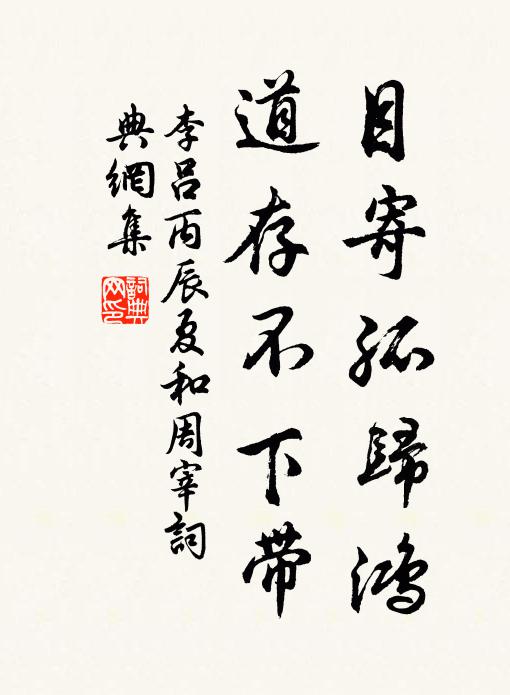 目寄孤歸鴻
道存不下帶
李吕丙辰夏和周宰詞
典網集
詞典網印